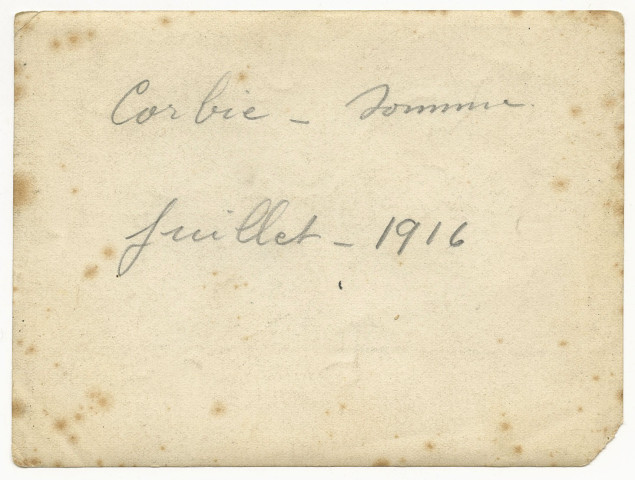 Corbie - Somme
Juillet - 1916